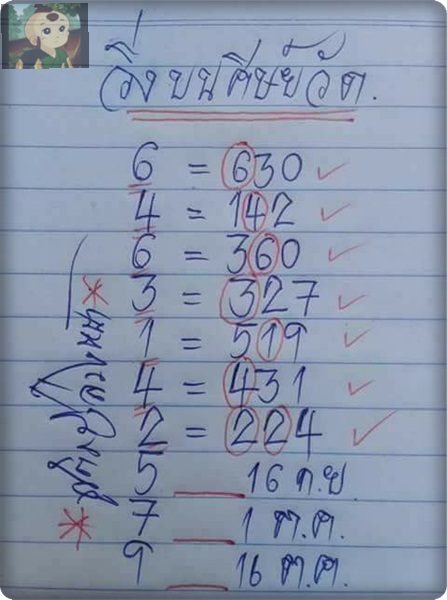 วิ่งบนศิษย์วัด.
6 = 630 ✓
4 = 142 ✓
6 = 360 ✓
3 = 327 ✓
1 = 519 ✓
4 = 431 ✓
2 = 224 ✓
5 __ 16 ก.ย.
7 __ 1 ต.ค.
9 __ 16 ต.ค.